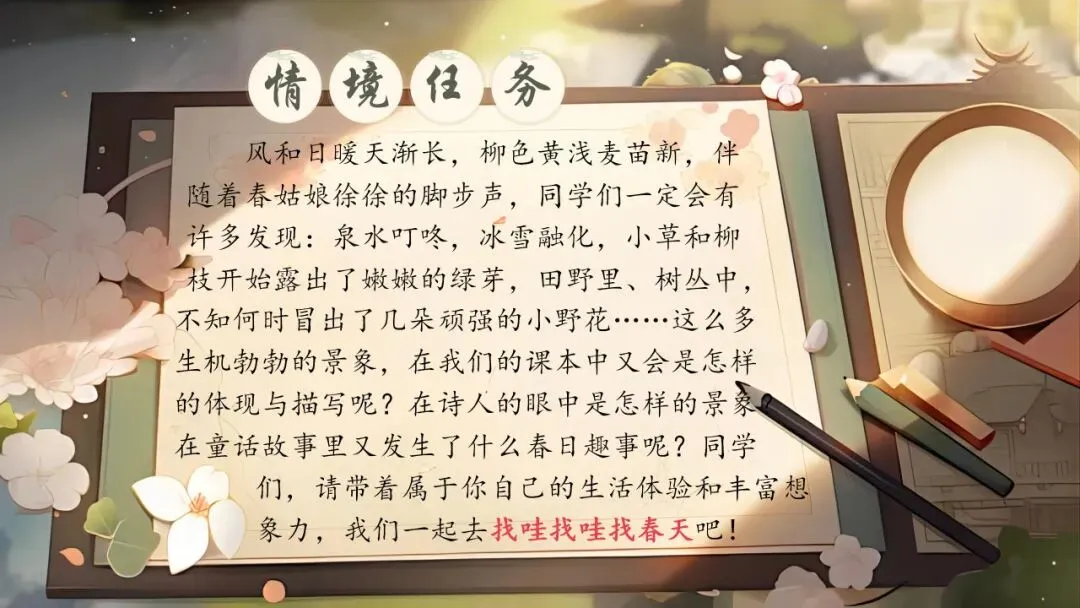 情境任务
风和日暖天渐长，柳色黄浅麦苗新，伴
随着春姑娘徐徐的脚步声，同学们一定会有
许多发现：泉水叮咚，冰雪融化，小草和柳
枝开始露出了嫩嫩的绿芽，田野里、树丛中，
不知何时冒出了几朵顽强的小野花……这么多
生机勃勃的景象，在我们的课本中又会是怎样
的体现与描写呢？在诗人的眼中是怎样的景象
在童话故事里又发生了什么春日趣事呢？同学
们，请带着属于你自己的生活体验和丰富想
象力，我们一起去找哇找哇找春天吧！